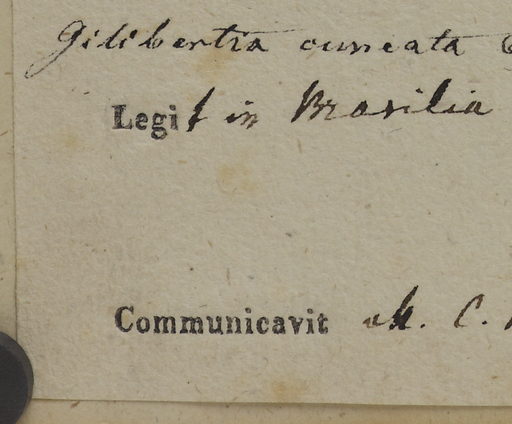 Gilibertia cuneata
Legit in Brasilia
Communicavit C.